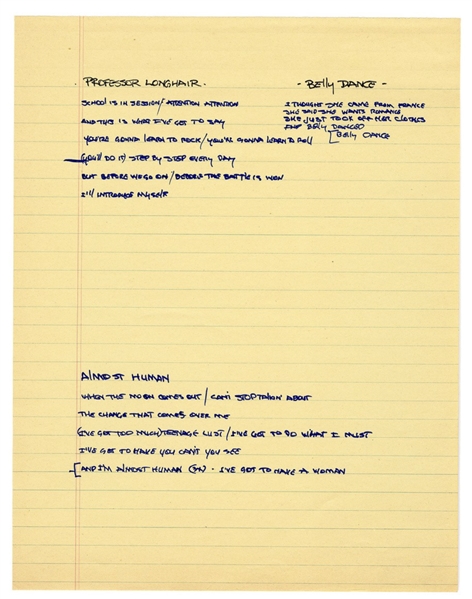 . PROFESSOR LONGHAIR .
SCHOOL IS IN SESSION / ATTENTION ATTENTION
AND THIS IS WHAT I'VE GOT TO SAY
YOU'RE GONNA LEARN TO ROCK / YOU'LL GONNA LEARN TO ROLL
(YOU'LL DO IT) STEP BY STEP EVERY DAY
BUT BEFORE WE GO ON / BEFORE THE BATTLE IS WON
I'LL INTRODUCE MYSELF
- BELLY DANCE -
I THOUGHT SHE CAME FROM FRANCE
SHE SAID SHE WANTS ROMANCE
SHE JUST TOOK OFF HER CLOTHES
AND BELLY DANCED
[BELLY DANCE
ALMOST HUMAN
WHEN THE MOON COMES OUT / CAN'T STOP TALKIN' ABOUT
THE CHANGE THAT COMES OVER ME
(I'VE GOT TOO MUCH) TEENAGE LUST / I'VE GOT TO DO WHAT I MUST
I'VE GOT TO MAKE YOU CAN'T YOU SEE
[AND I'M ALMOST HUMAN · I'VE GOT TO HAVE A WOMAN